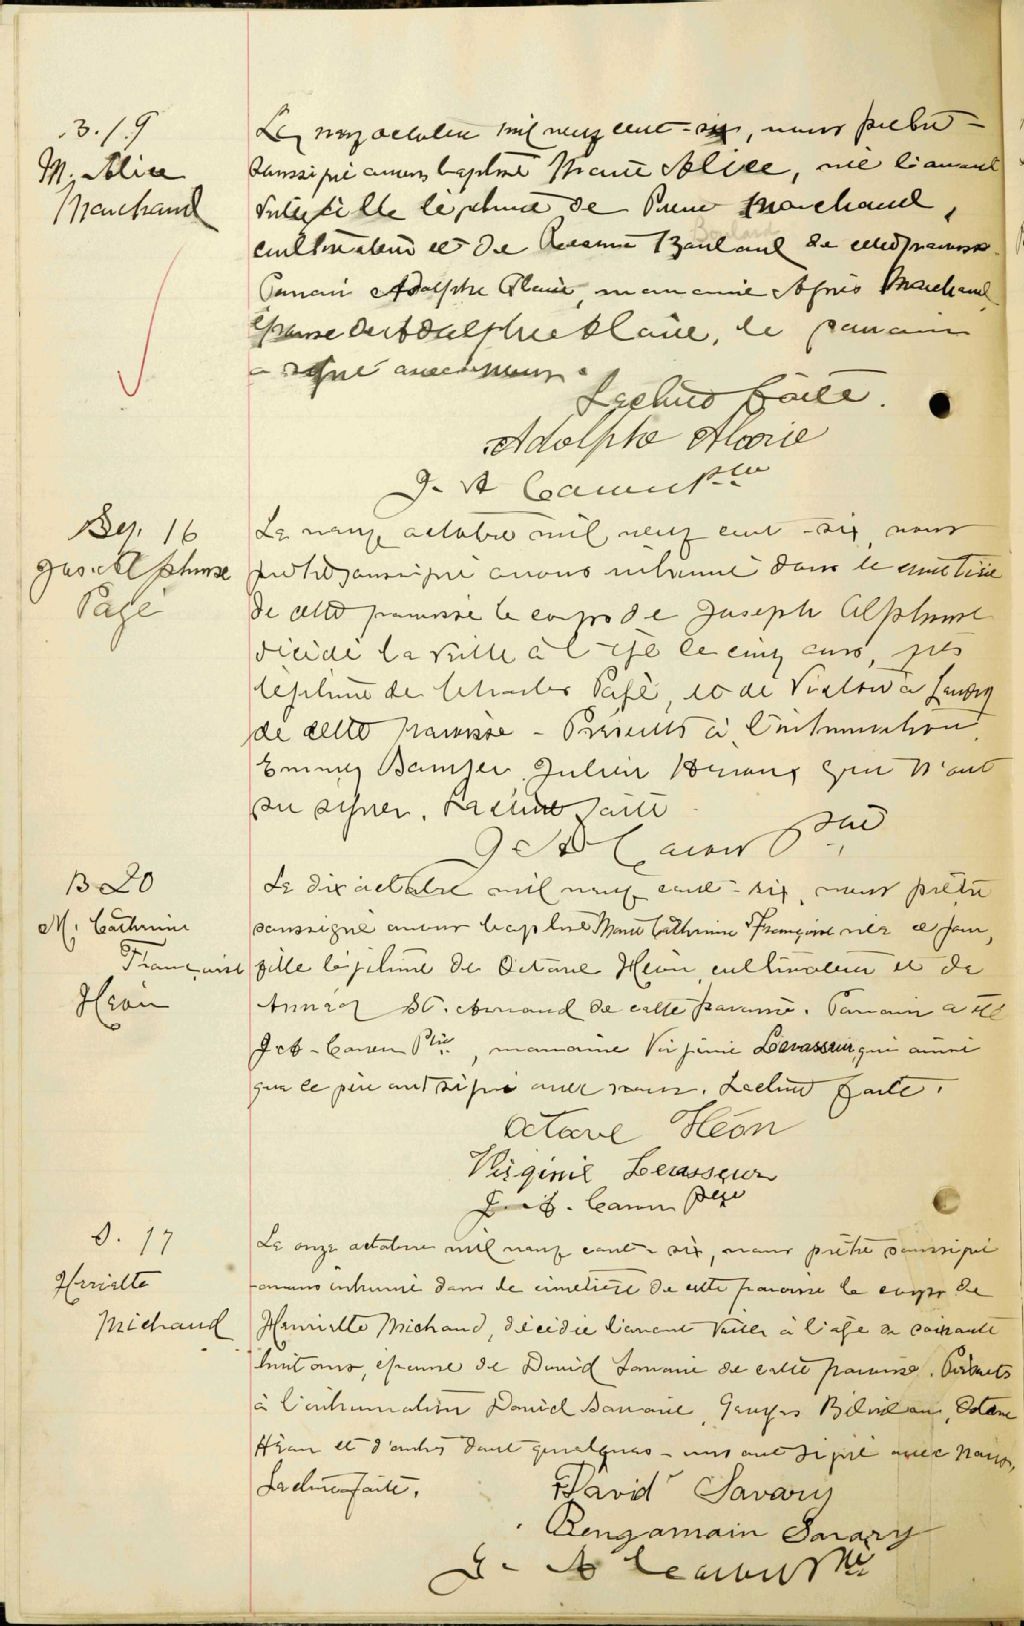 B. 19
M. Alice
Marchand
Le neuf octobre mil neuf cent-six, nous prêtre
soussigné avons baptisé Marie Alice, née l'avant
veille fille légitime de Pierre Marchand,
Boulard
cultivateur et de Rosanna Boulard de cette paroisse.
Parrain Adolphe Alarie, marraine Agnès Marchand,
épouse de Adolphe Alarie, le parrain
a signé avec nous.
Lecture faite.
Adolphe Alarie
J. A Caron Ptre
Sep. 16
Jos. Alphonse
Pagé
Le neuf octobre mil neuf cent-six, nous
prêtre soussigné avons inhumé dans le cimetière
de cette paroisse le corps de Joseph Alphonse
décédé la veille à l'âge de cinq ans, fils
légitime de Charles Pagé, et de Victoria
de cette paroisse - Présents à l'inhumation
Julien Héroux qui n'ont
su signer. Lecture faite
J. A Caron Ptre
B 20
M. Catherine
Françoise
Héon
Le dix octobre mil neuf cent-six, nous prêtre
soussigné avons baptisé Marie Catherine Françoise née ce jour,
fille légitime de Octave Héon cultivateur et de
St. Arnaud de cette paroisse. Parrain a été
J. A. Caron Ptre, marraine Virginie Levasseur, qui ainsi
que le père ont signé avec nous. Lecture faite.
Octave Héon
Virginie Levasseur
J. A. Caron Ptre
S. 17
Henriette
Michaud
Le onze octobre mil neuf cent-six, nous prêtre soussigné
avons inhumé dans le cimetière de cette paroisse le corps de
Henriette Michaud, décédée l'avant veille à l'âge de soixante
huit ans, épouse de David Savarie de cette paroisse. Présents
à l'inhumation David Savarie, Georges Béliveau, Octave
Héon et d'autres dont quelques-uns ont signé avec nous,
Lecture faite.
David Savary
Bengamain Savary
J. A Caron Ptre